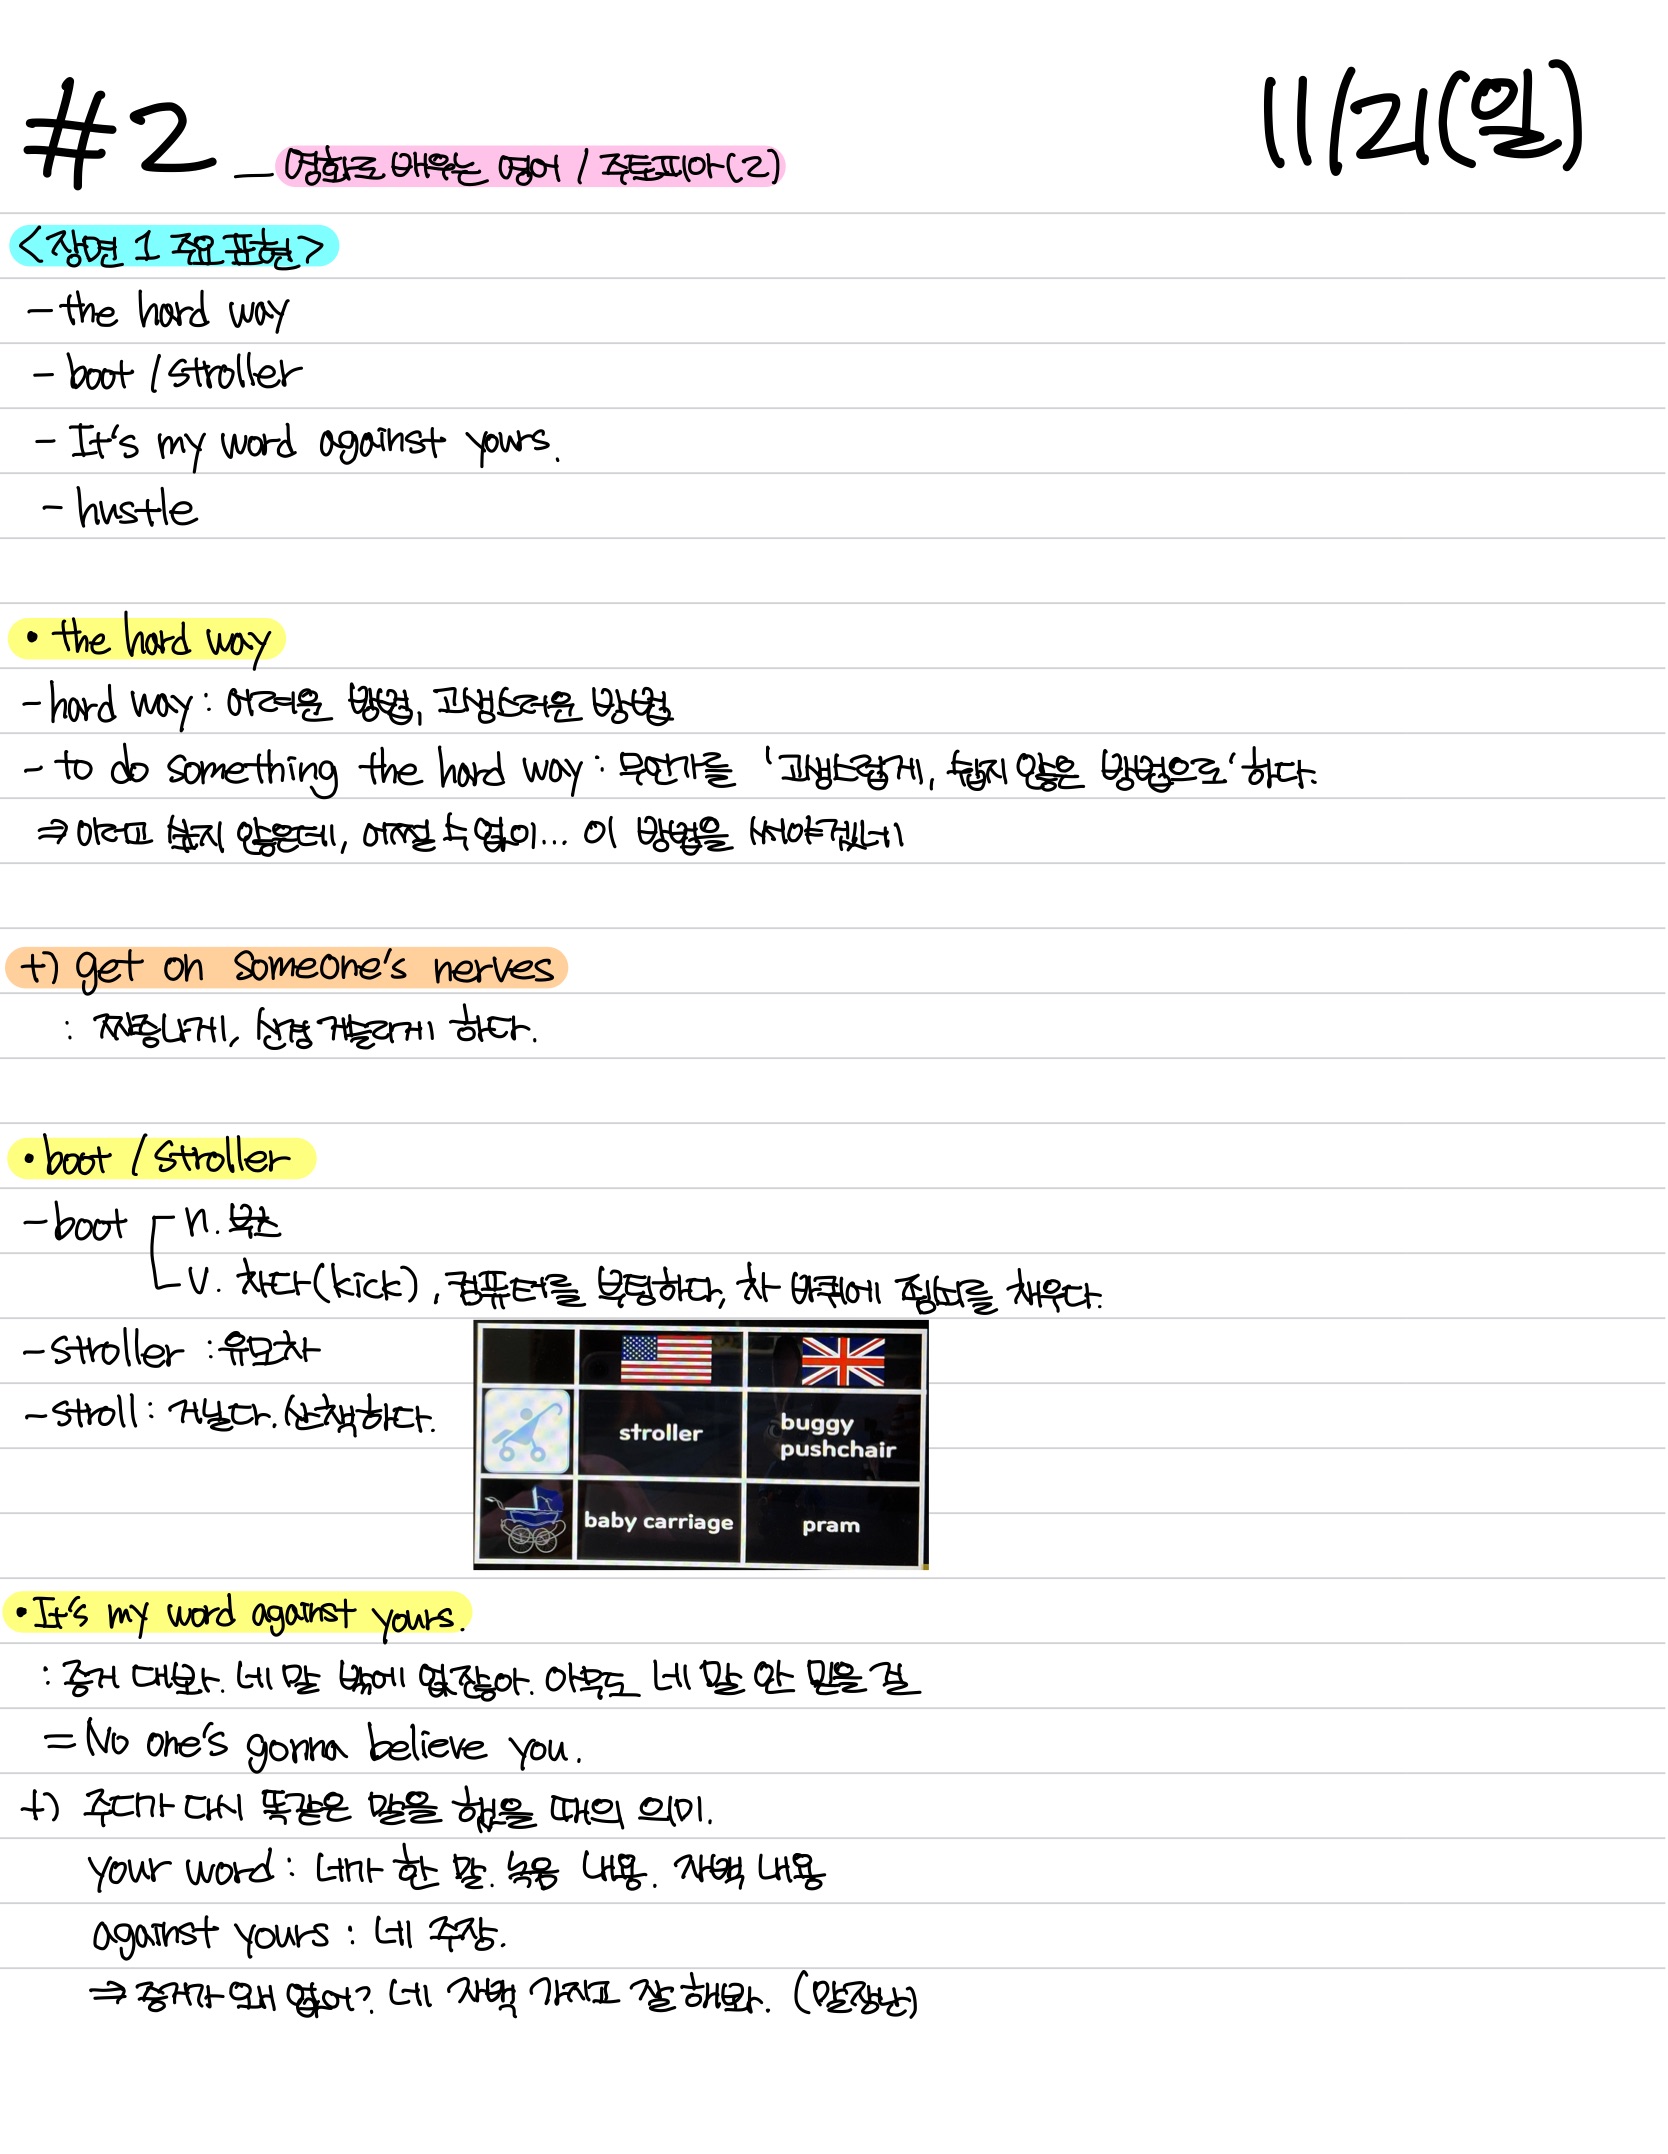 #2 _ 영화로 배우는 영어 / 주토피아(2) 11/21(일)
<장면 1 주요 표현>
- the hard way
- boot / stroller
- It's my word against yours.
- hustle
• the hard way
- hard way : 어려운 방법, 고생스러운 방법
- to do something the hard way : 무언가를 '고생스럽게, 쉽지 않은 방법으로' 하다.
⇒ 이러고 싶지 않은데, 어쩔 수 없이... 이 방법을 써야겠네
+) get on someone's nerves
: 짜증나게, 신경 거슬리게 하다.
• boot / stroller
- boot n. 부츠
v. 차다(kick), 컴퓨터를 부팅하다, 차 바퀴에 죔쇠를 채우다.
- stroller : 유모차
- stroll : 거닐다. 산책하다.
stroller
buggy
pushchair
baby carriage
pram
• It's my word against yours.
: 증거 대봐. 네 말 밖에 없잖아. 아무도 네 말 안 믿을 걸
= No one's gonna believe you.
+) 주디가 다시 똑같은 말을 했을 때의 의미.
your word : 너가 한 말. 녹음 내용. 자백 내용
against yours : 네 주장.
⇒ 증거가 왜 없어? 네 자백 가지고 잘 해봐. (말장난)